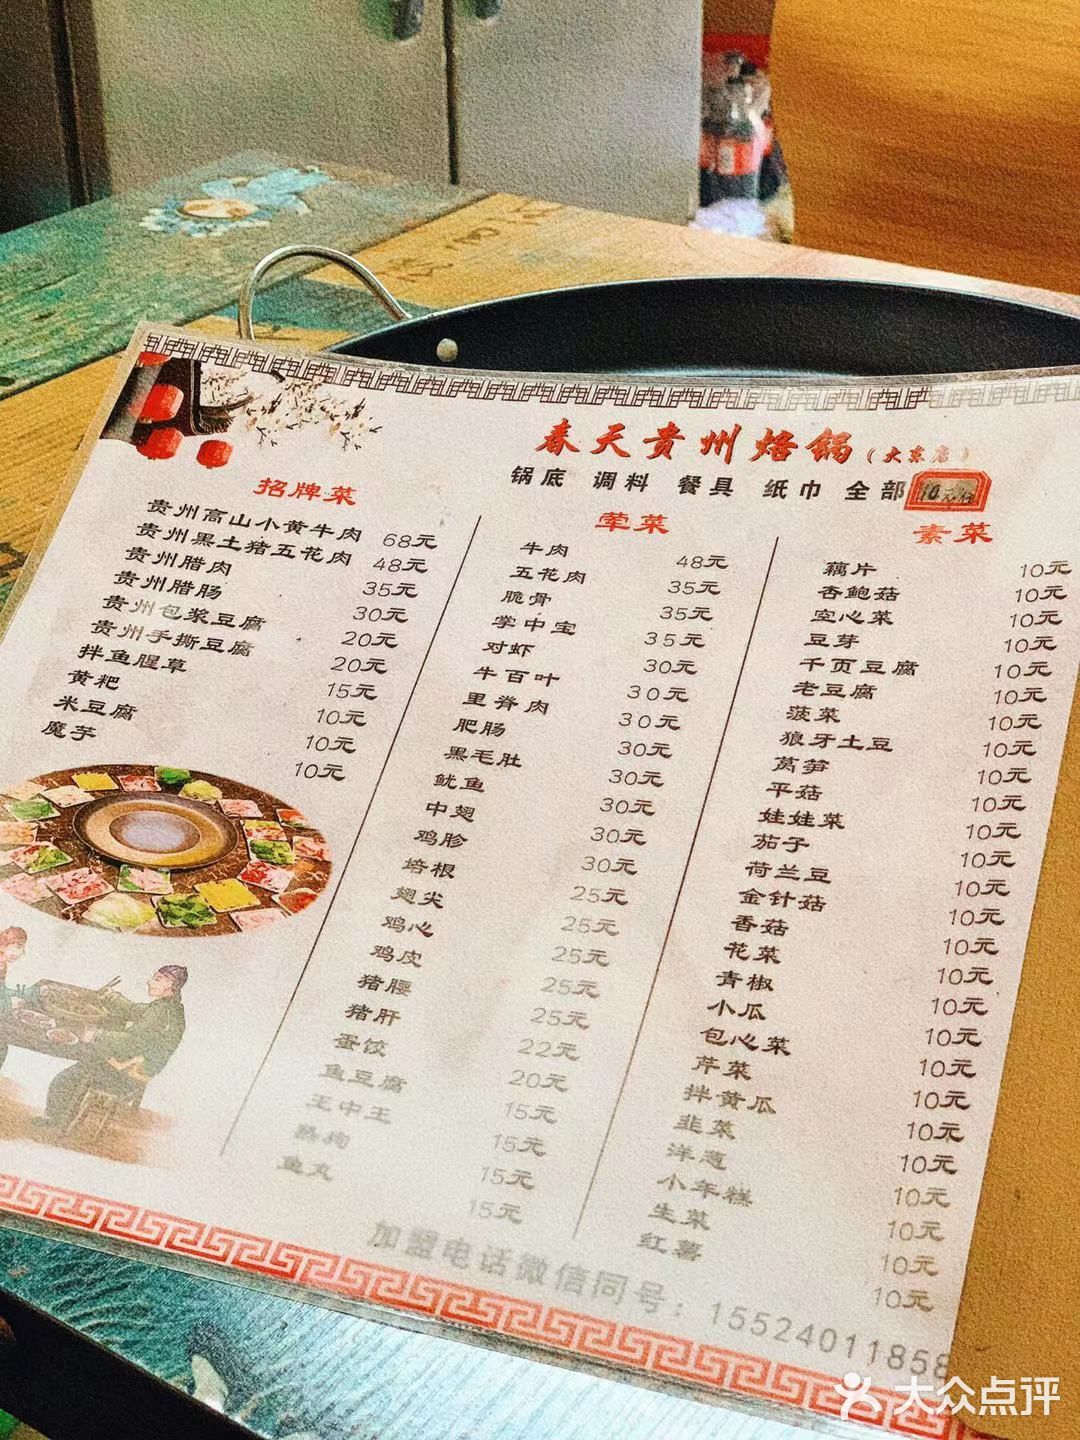 春天贵州烙锅（大东店）
锅底 调料 餐具 纸巾 全部10元/位
招牌菜
贵州高山小黄牛肉 68元
贵州黑土猪五花肉 48元
贵州腊肉 35元
贵州腊肠 30元
贵州包浆豆腐 20元
贵州手撕豆腐 20元
拌鱼腥草 15元
黄粑 10元
米豆腐 10元
魔芋 10元
荤菜
牛肉 48元
五花肉 35元
脆骨 35元
掌中宝 35元
对虾 30元
牛百叶 30元
里脊肉 30元
肥肠 30元
黑毛肚 30元
鱿鱼 30元
中翅 30元
鸡胗 30元
培根 25元
翅尖 25元
鸡心 25元
鸡皮 25元
猪腰 25元
猪肝 22元
蛋饺 20元
鱼豆腐 15元
王中王 15元
热狗 15元
鱼丸 15元
素菜
藕片 10元
杏鲍菇 10元
空心菜 10元
豆芽 10元
千页豆腐 10元
老豆腐 10元
菠菜 10元
狼牙土豆 10元
莴笋 10元
平菇 10元
娃娃菜 10元
茄子 10元
荷兰豆 10元
金针菇 10元
香菇 10元
花菜 10元
青椒 10元
小瓜 10元
包心菜 10元
芹菜 10元
拌黄瓜 10元
韭菜 10元
洋葱 10元
小年糕 10元
生菜 10元
红薯 10元
加盟电话微信同号：15524011858
大众点评